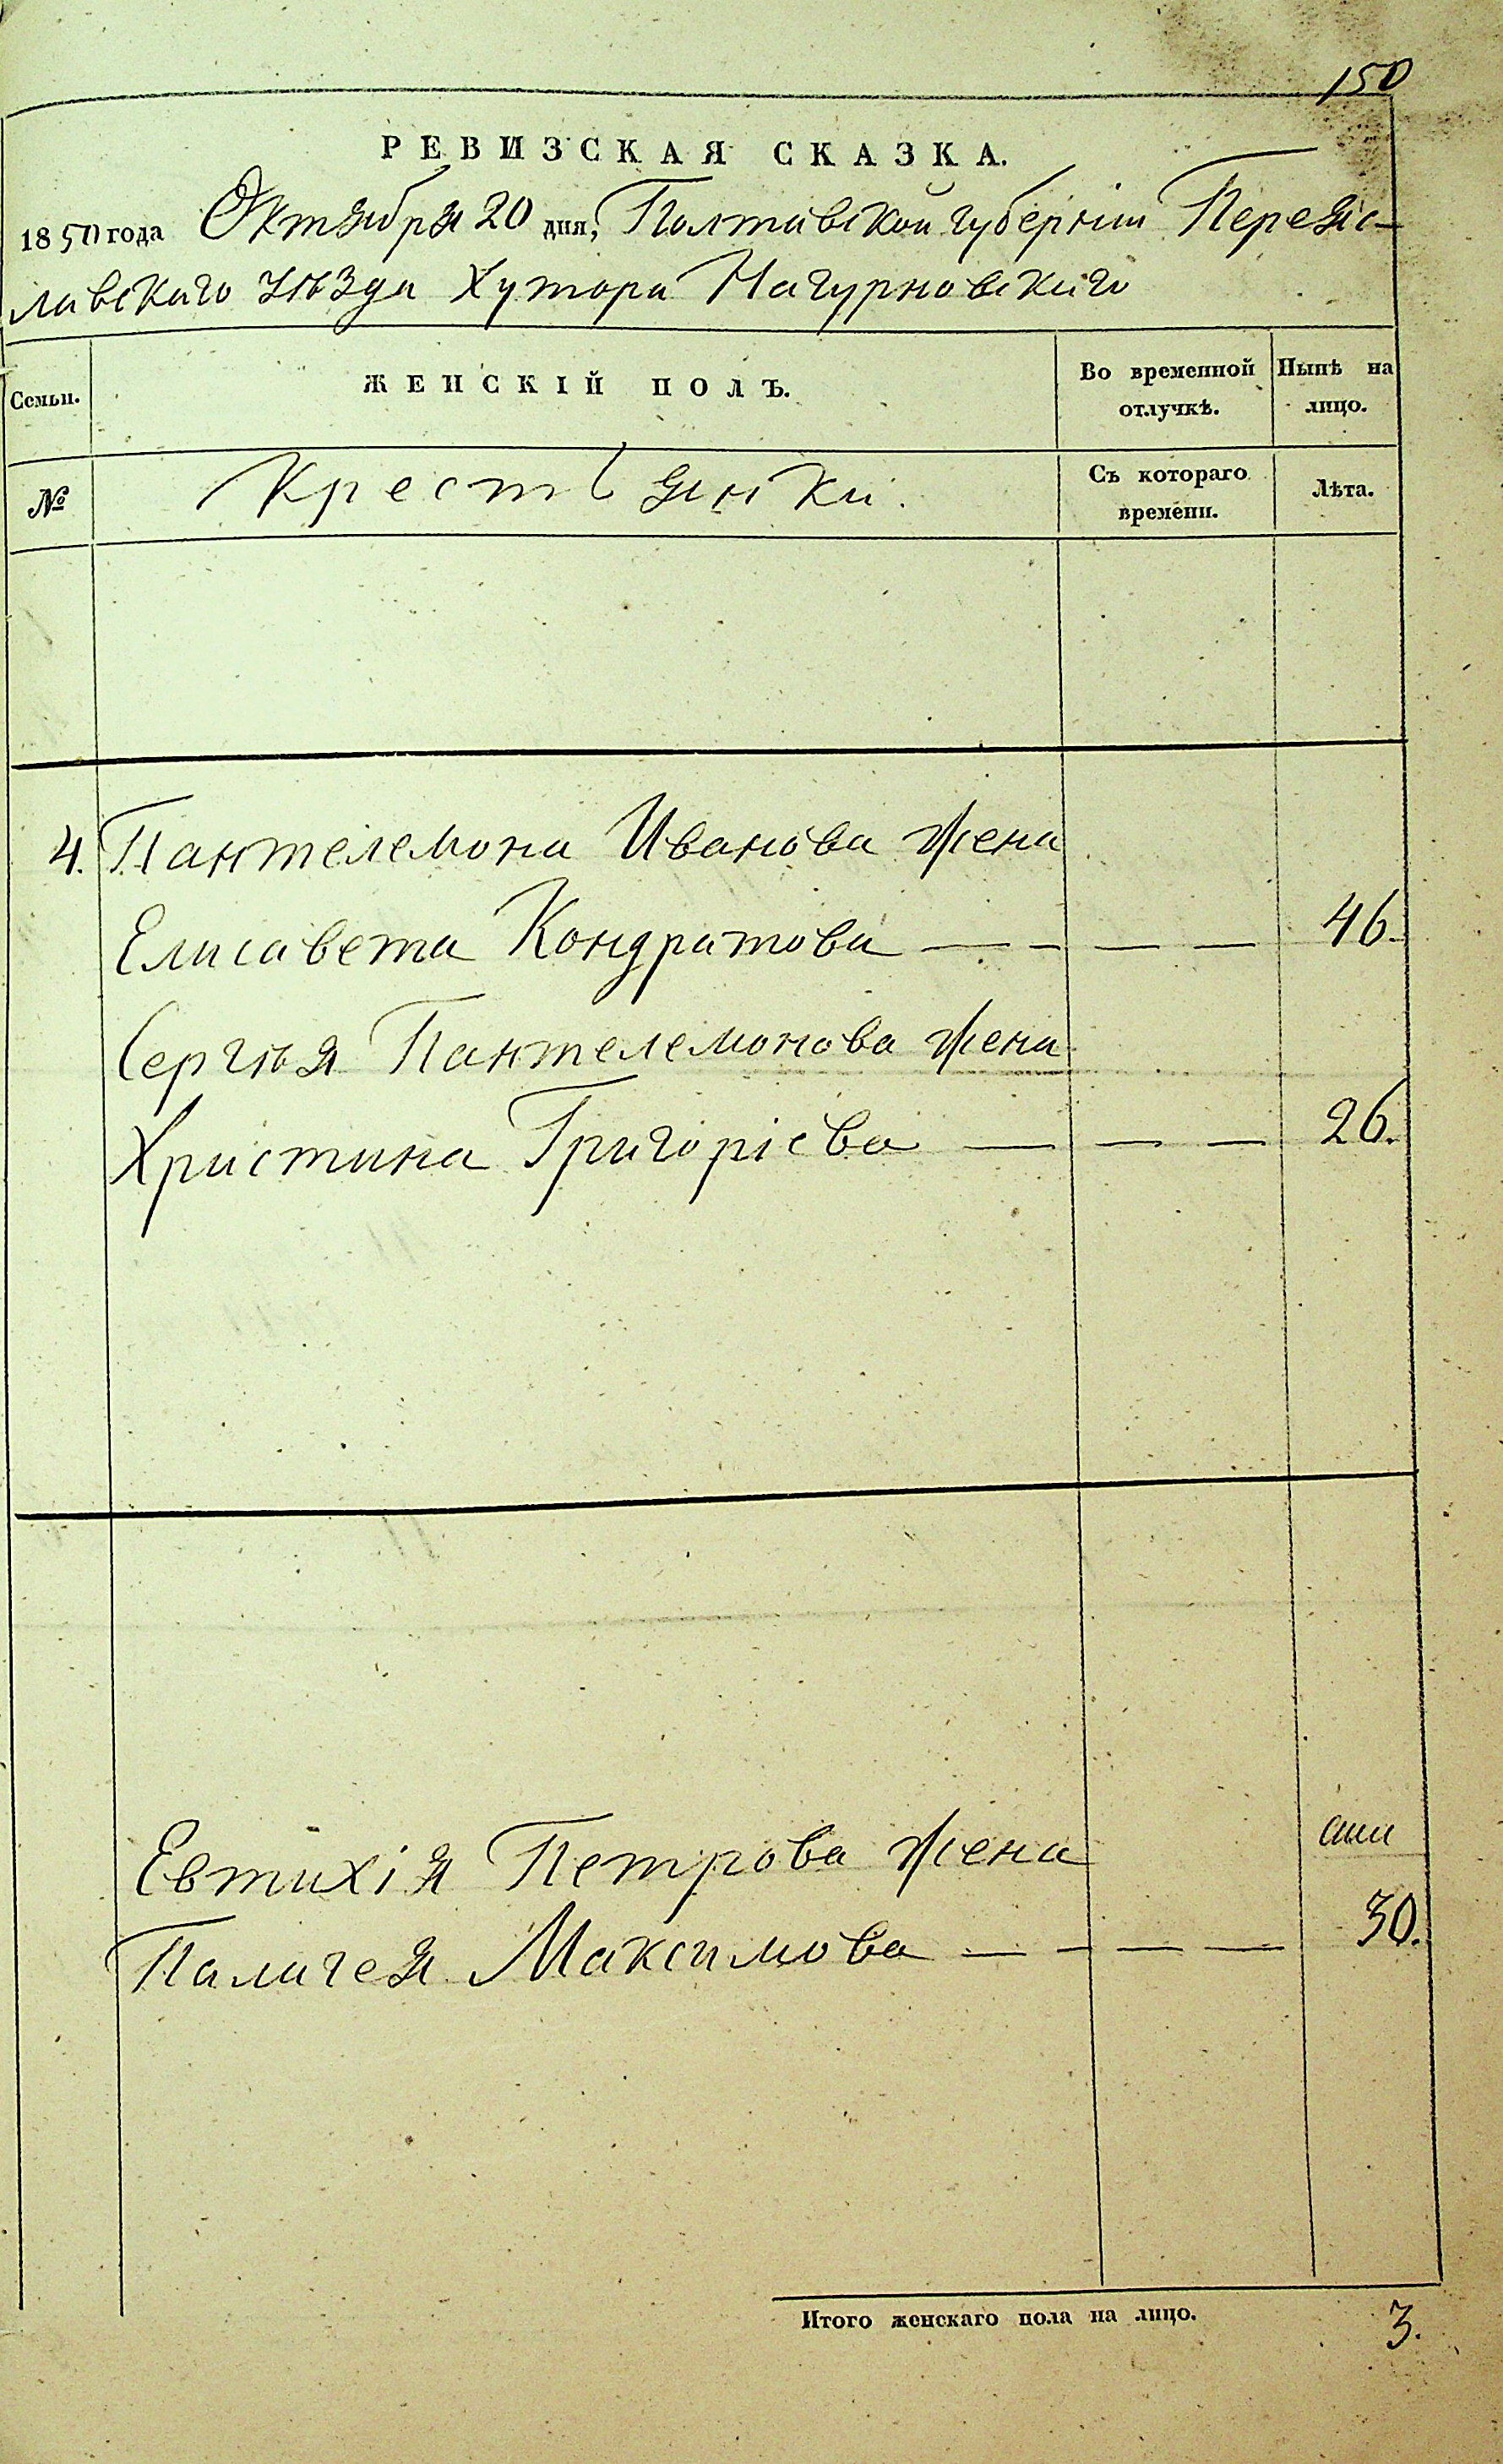 150
РЕВИЗСКАЯ СКАЗКА.
1850 года Октября 20 дня, Полтавской губерніи Переяс-
лавскаго уѣзда Хутора Нагурновскаго
Семьи.
ЖЕНСКІЙ ПОЛЪ.
Во временной отлучкѣ.
Нынѣ на лицо.
№
Крестьянки.
Съ котораго времени.
Лѣта.
4. Пантелемона Иванова жена
Елисавета Кондратова — — — — 46.
Сергѣя Пантелемонова жена
Христина Григоріева — — — 26.
Евтихія Петрова жена
Палагея Максимова — — — — 30.
Итого женскаго пола на лицо. 3.